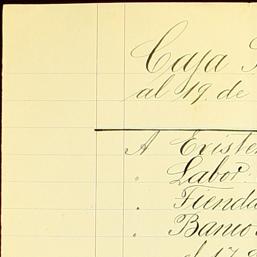 Caja
al 19. de
A Existen
" Labor.
" Tienda
" Banco